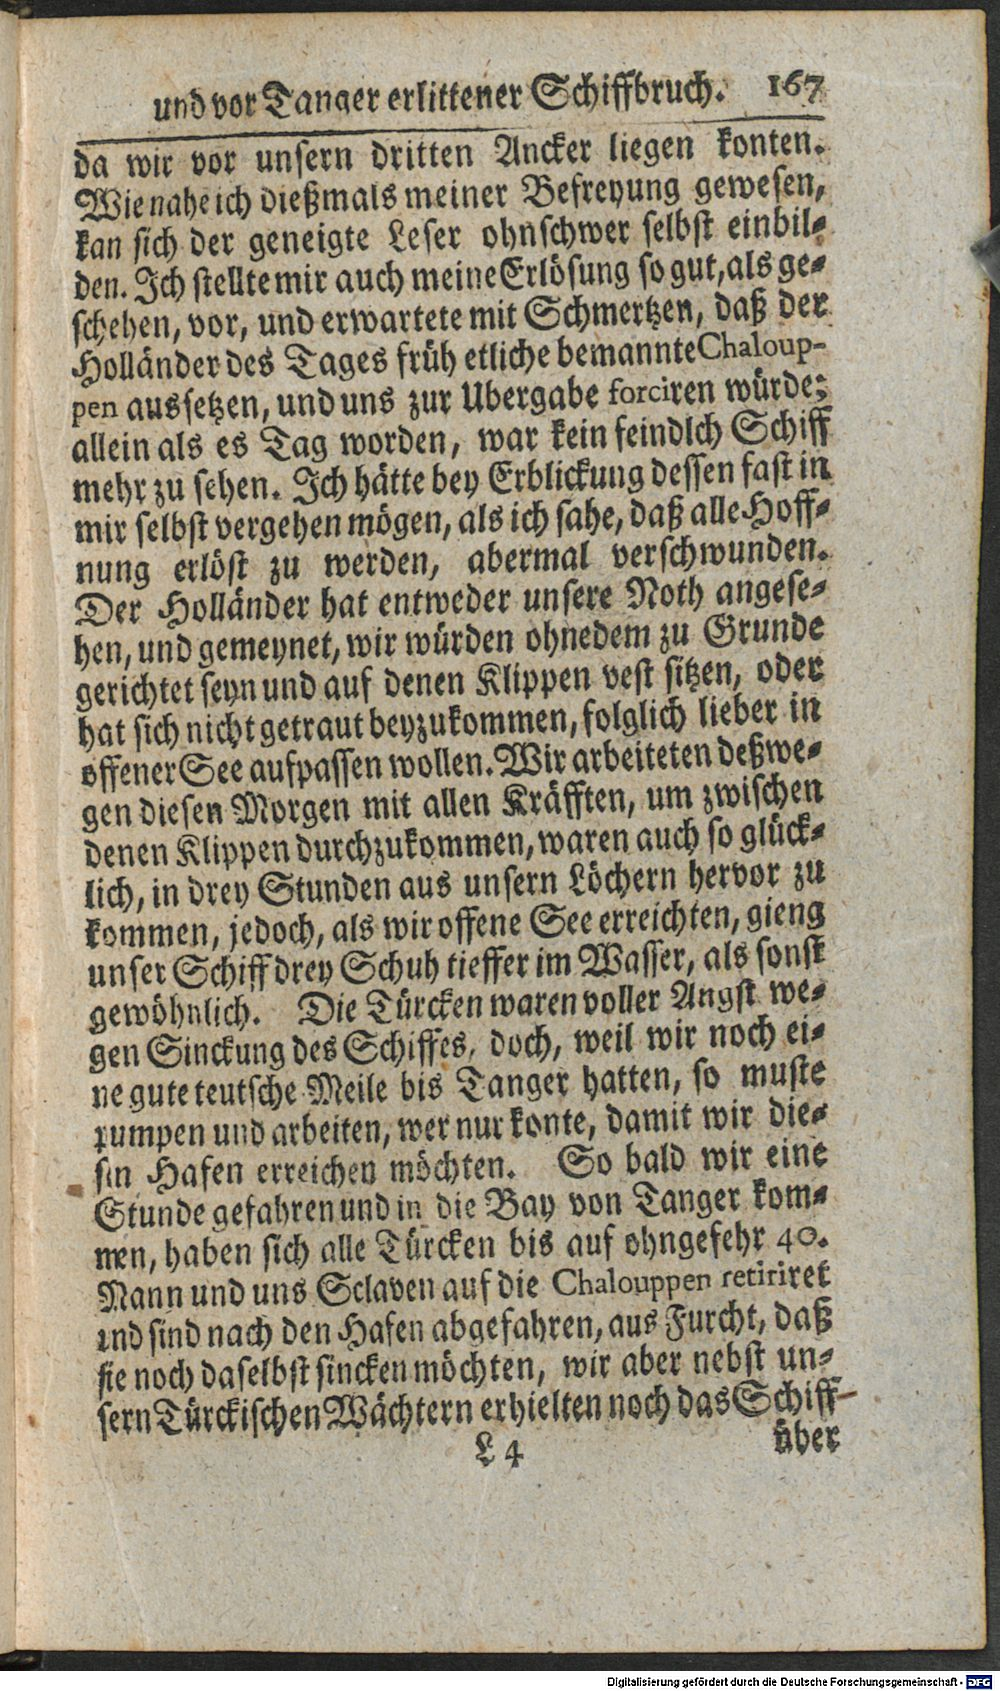 und vor Tanger erlittener Schiffbruch. 167
da wir vor unsern dritten Ancker liegen konten.
Wie nahe ich dießmals meiner Befreyung gewesen,
kan sich der geneigte Leser ohnschwer selbst einbil-
den. Ich stellte mir auch meine Erlösung so gut, als ge-
schehen, vor, und erwartete mit Schmertzen, daß der
Holländer des Tages früh etliche bemannte Chaloup-
pen aussetzen, und uns zur Ubergabe forciren würde;
allein als es Tag worden, war kein feindlch Schiff
mehr zu sehen. Ich hätte bey Erblickung dessen fast in
mir selbst vergehen mögen, als ich sahe, daß alle Hoff-
nung erlöst zu werden, abermal verschwunden.
Der Holländer hat entweder unsere Noth angese-
hen, und gemeynet, wir würden ohnedem zu Grunde
gerichtet seyn und auf denen Klippen vest sitzen, oder
hat sich nicht getraut beyzukommen, folglich lieber in
offener See aufpassen wollen. Wir arbeiteten deßwe-
gen diesen Morgen mit allen Kräfften, um zwischen
denen Klippen durchzukommen, waren auch so glück-
lich, in drey Stunden aus unsern Löchern hervor zu
kommen, jedoch, als wir offene See erreichten, gieng
unser Schiff drey Schuh tieffer im Wasser, als sonst
gewöhnlich. Die Türcken waren voller Angst we-
gen Sinckung des Schiffes, doch, weil wir noch ei-
ne gute teutsche Meile bis Tanger hatten, so muste
pumpen und arbeiten, wer nur konte, damit wir die-
sen Hafen erreichen möchten. So bald wir eine
Stunde gefahren und in die Bay von Tanger kom-
men, haben sich alle Türcken bis auf ohngefehr 40.
Mann und uns Sclaven auf die Chalouppen retiriret
und sind nach den Hafen abgefahren, aus Furcht, daß
sie noch daselbst sincken möchten, wir aber nebst un-
sern Türckischen Wächtern erhielten noch das Schiff
L 4 über
Digitalisierung gefördert durch die Deutsche Forschungsgemeinschaft - DFG